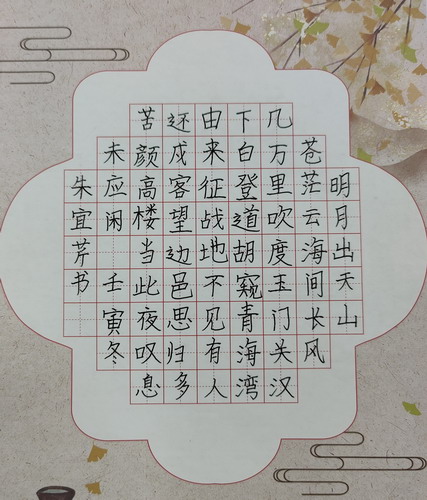 明月出天山
苍茫云海间长风
几万里吹度玉门关汉
下白登道胡窥青海湾
由来征战地不见有人
还戍客望边邑思归多
苦颜高楼当此夜叹息
未应闲 壬寅冬
朱宜芹书